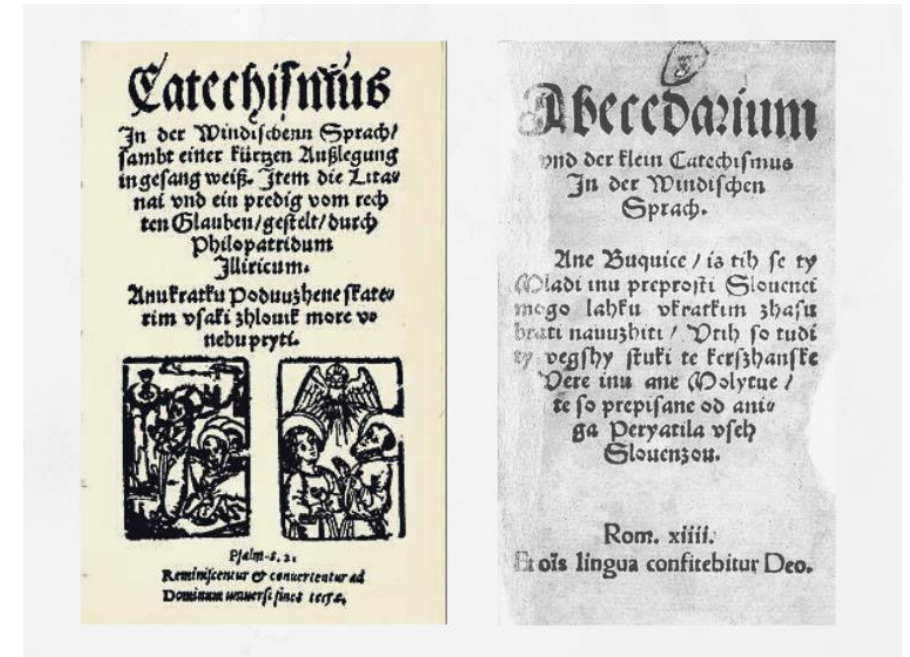 Catechismus
In der Windischenn Sprach/
sambt einer kürtzen Außlegung
in gesang weiß. Item die Lita⸗
nai vnd ein predig vom rech
ten Glauben/gestelt/durch
Philopatridum
Jlliricum.
Anu kratku Poduuzhene skate⸗
rim vsaki zhlouik more vo
nebu pryti.
Psalm.
Reminiscentur & conuertentur ad
Dominum vniuersi fines terræ.
Abecedarium
vnd der klein Catechismus
In der Windischen
Sprach.
Ane Buquice / is tih se ty
Mladi inu preprosti Slouenci
mogo lahku vkratkim zhasu
brati nauuzhiti / Vtih so tudi
ty vegshy stuki te kerszhanske
Vere inu ane Molytue /
te so prepisane od ani⸗
ga Peryatila vseh
Slouenzou.
Rom. xiiii.
Et oĩs lingua confitebitur Deo.